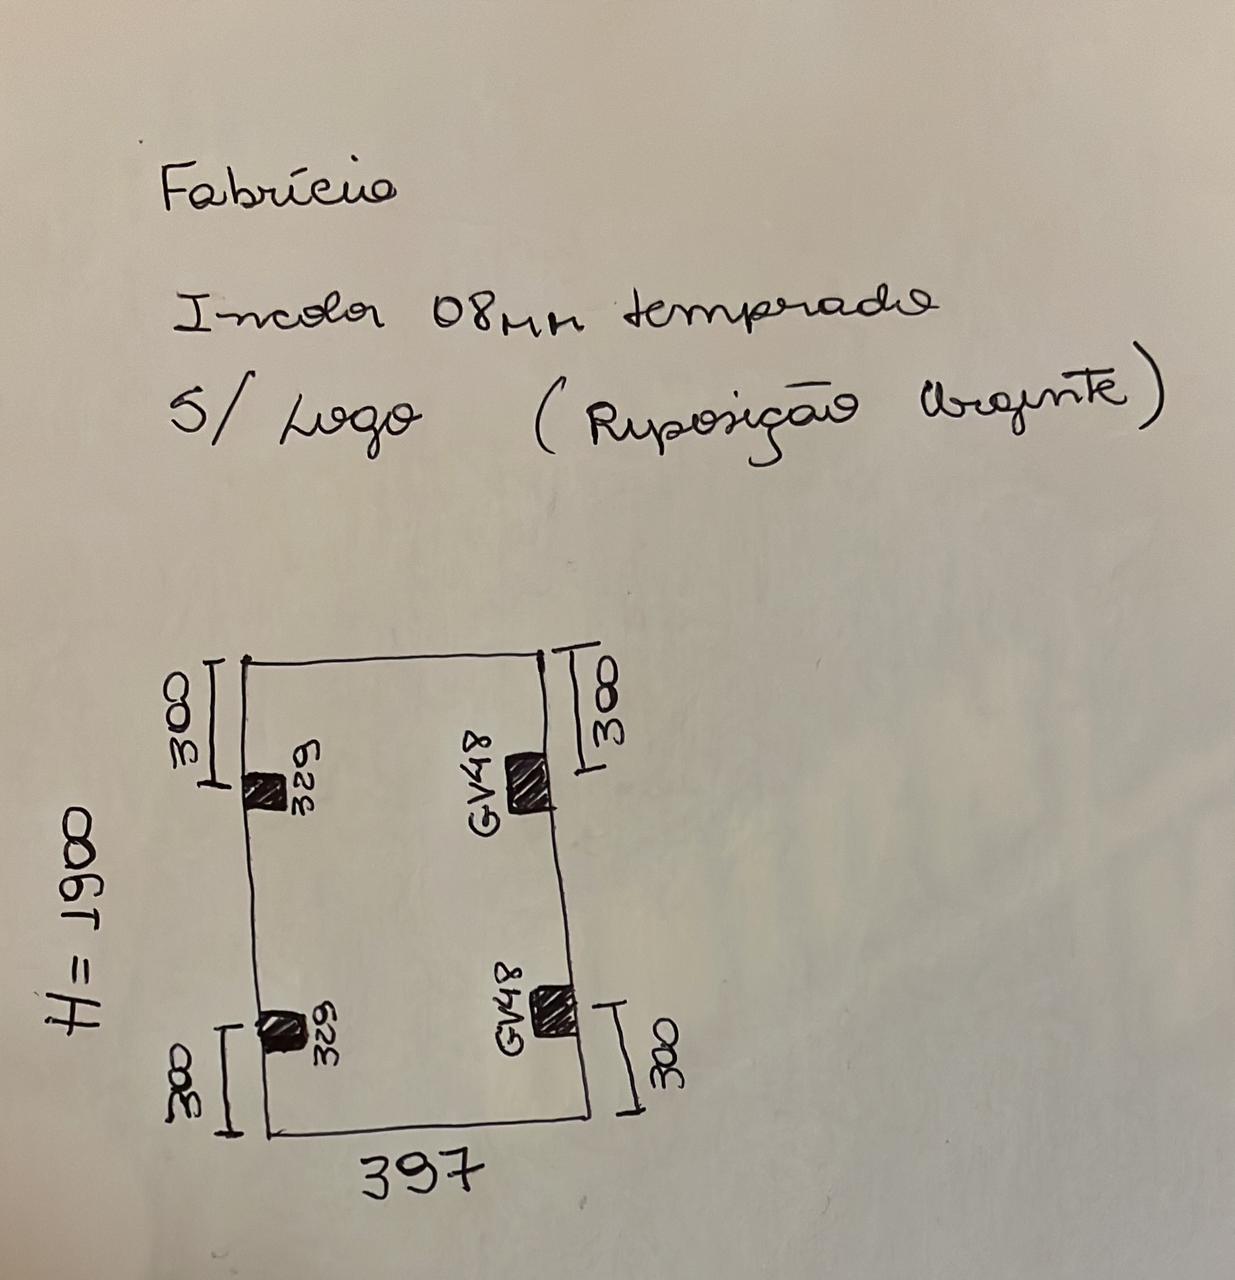 Fabrício
Incolor 08mm temperado
S/ Logo (Reposição Urgente)
300
300
329
GV48
H = 1900
329
GV48
300
300
397